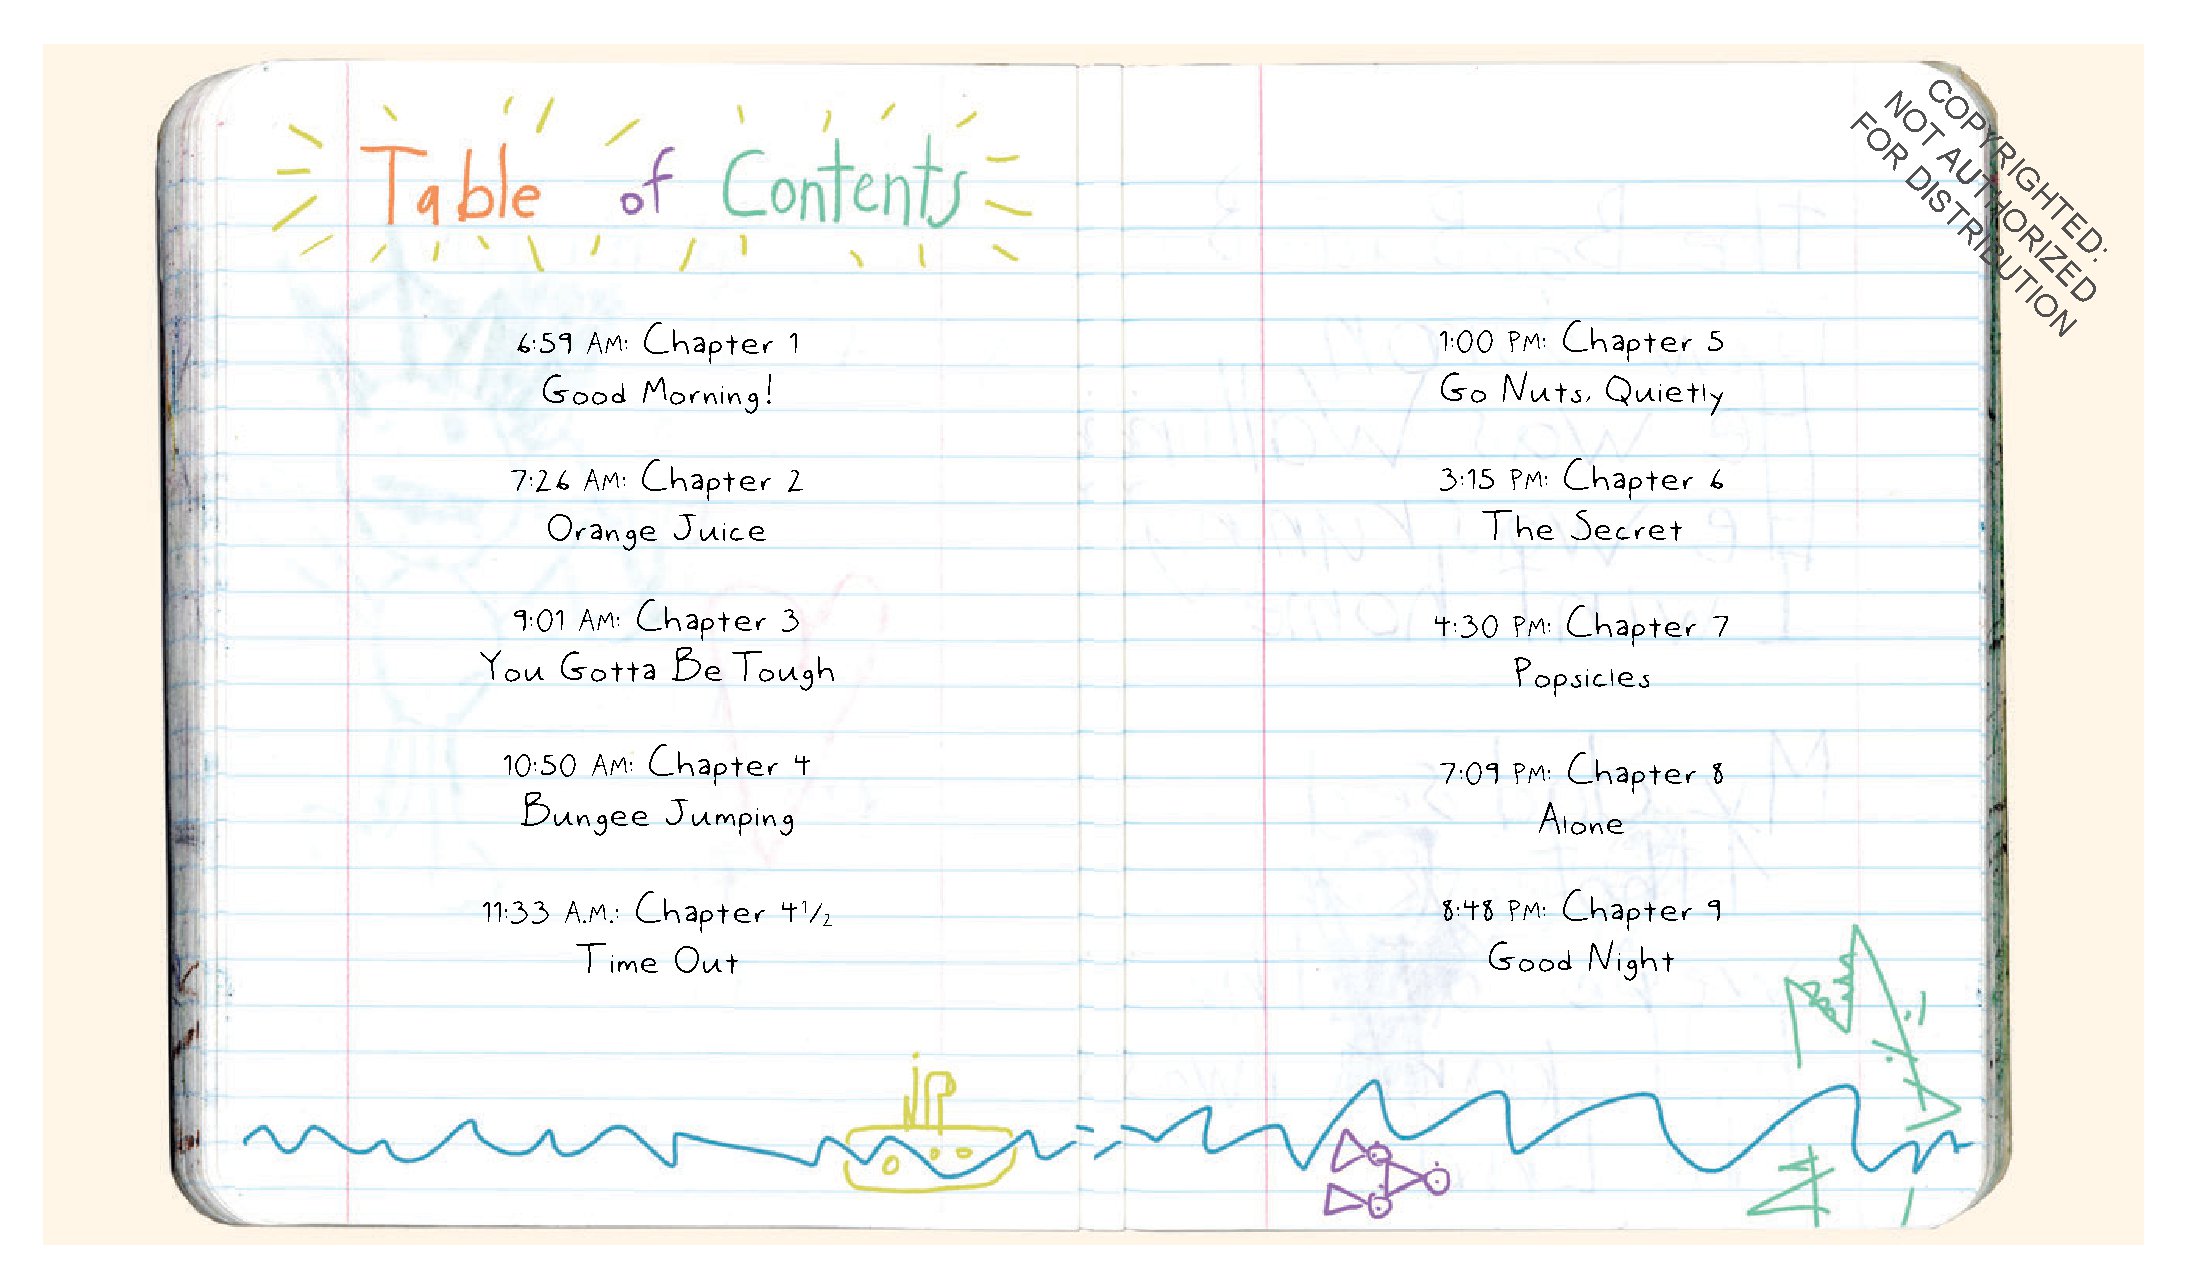 Table of Contents
6:59 AM: Chapter 1
Good Morning!
7:26 AM: Chapter 2
Orange Juice
9:01 AM: Chapter 3
You Gotta Be Tough
10:50 AM: Chapter 4
Bungee Jumping
11:33 A.M.: Chapter 4 1/2
Time Out
1:00 PM: Chapter 5
Go Nuts, Quietly
3:15 PM: Chapter 6
The Secret
4:30 PM: Chapter 7
Popsicles
7:09 PM: Chapter 8
Alone
8:48 PM: Chapter 9
Good Night
COPYRIGHTED:
NOT AUTHORIZED
FOR DISTRIBUTION